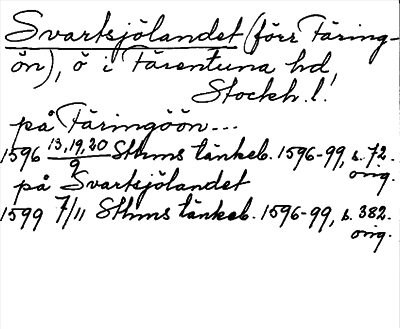 Svartsjölandet (förr Färing-
ön), ö i Färentuna hd,
Stockh. l.
på Färingöön...
1596 13,19,20/9 Sthms tänkeb. 1596-99, s. 72.
orig.
på Svartsjölandet
1599 7/11 Sthms tänkeb. 1596-99, s. 382.
orig.